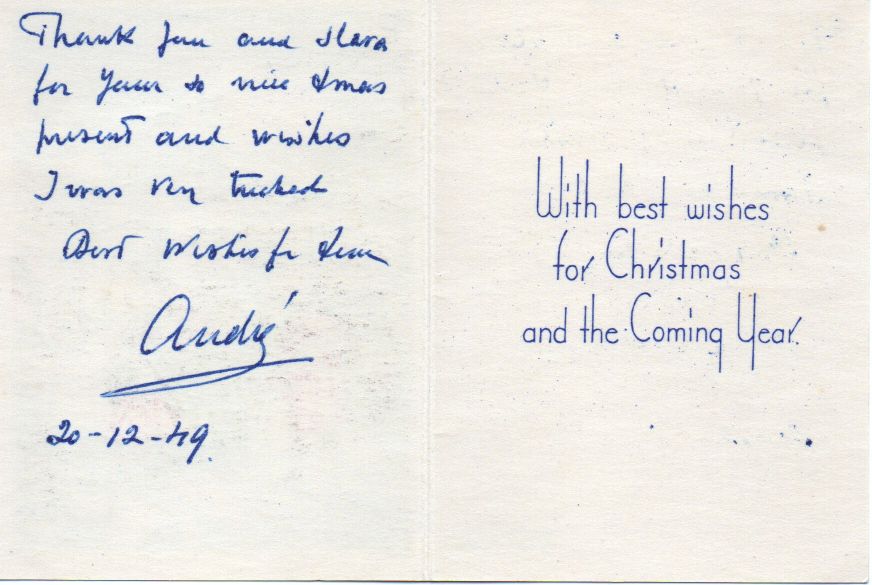 Thank you and
for your so nice Xmas
present and wishes
I was very tuched
Best Wishes for
André
20-12-49.
With best wishes
for Christmas
and the Coming Year.